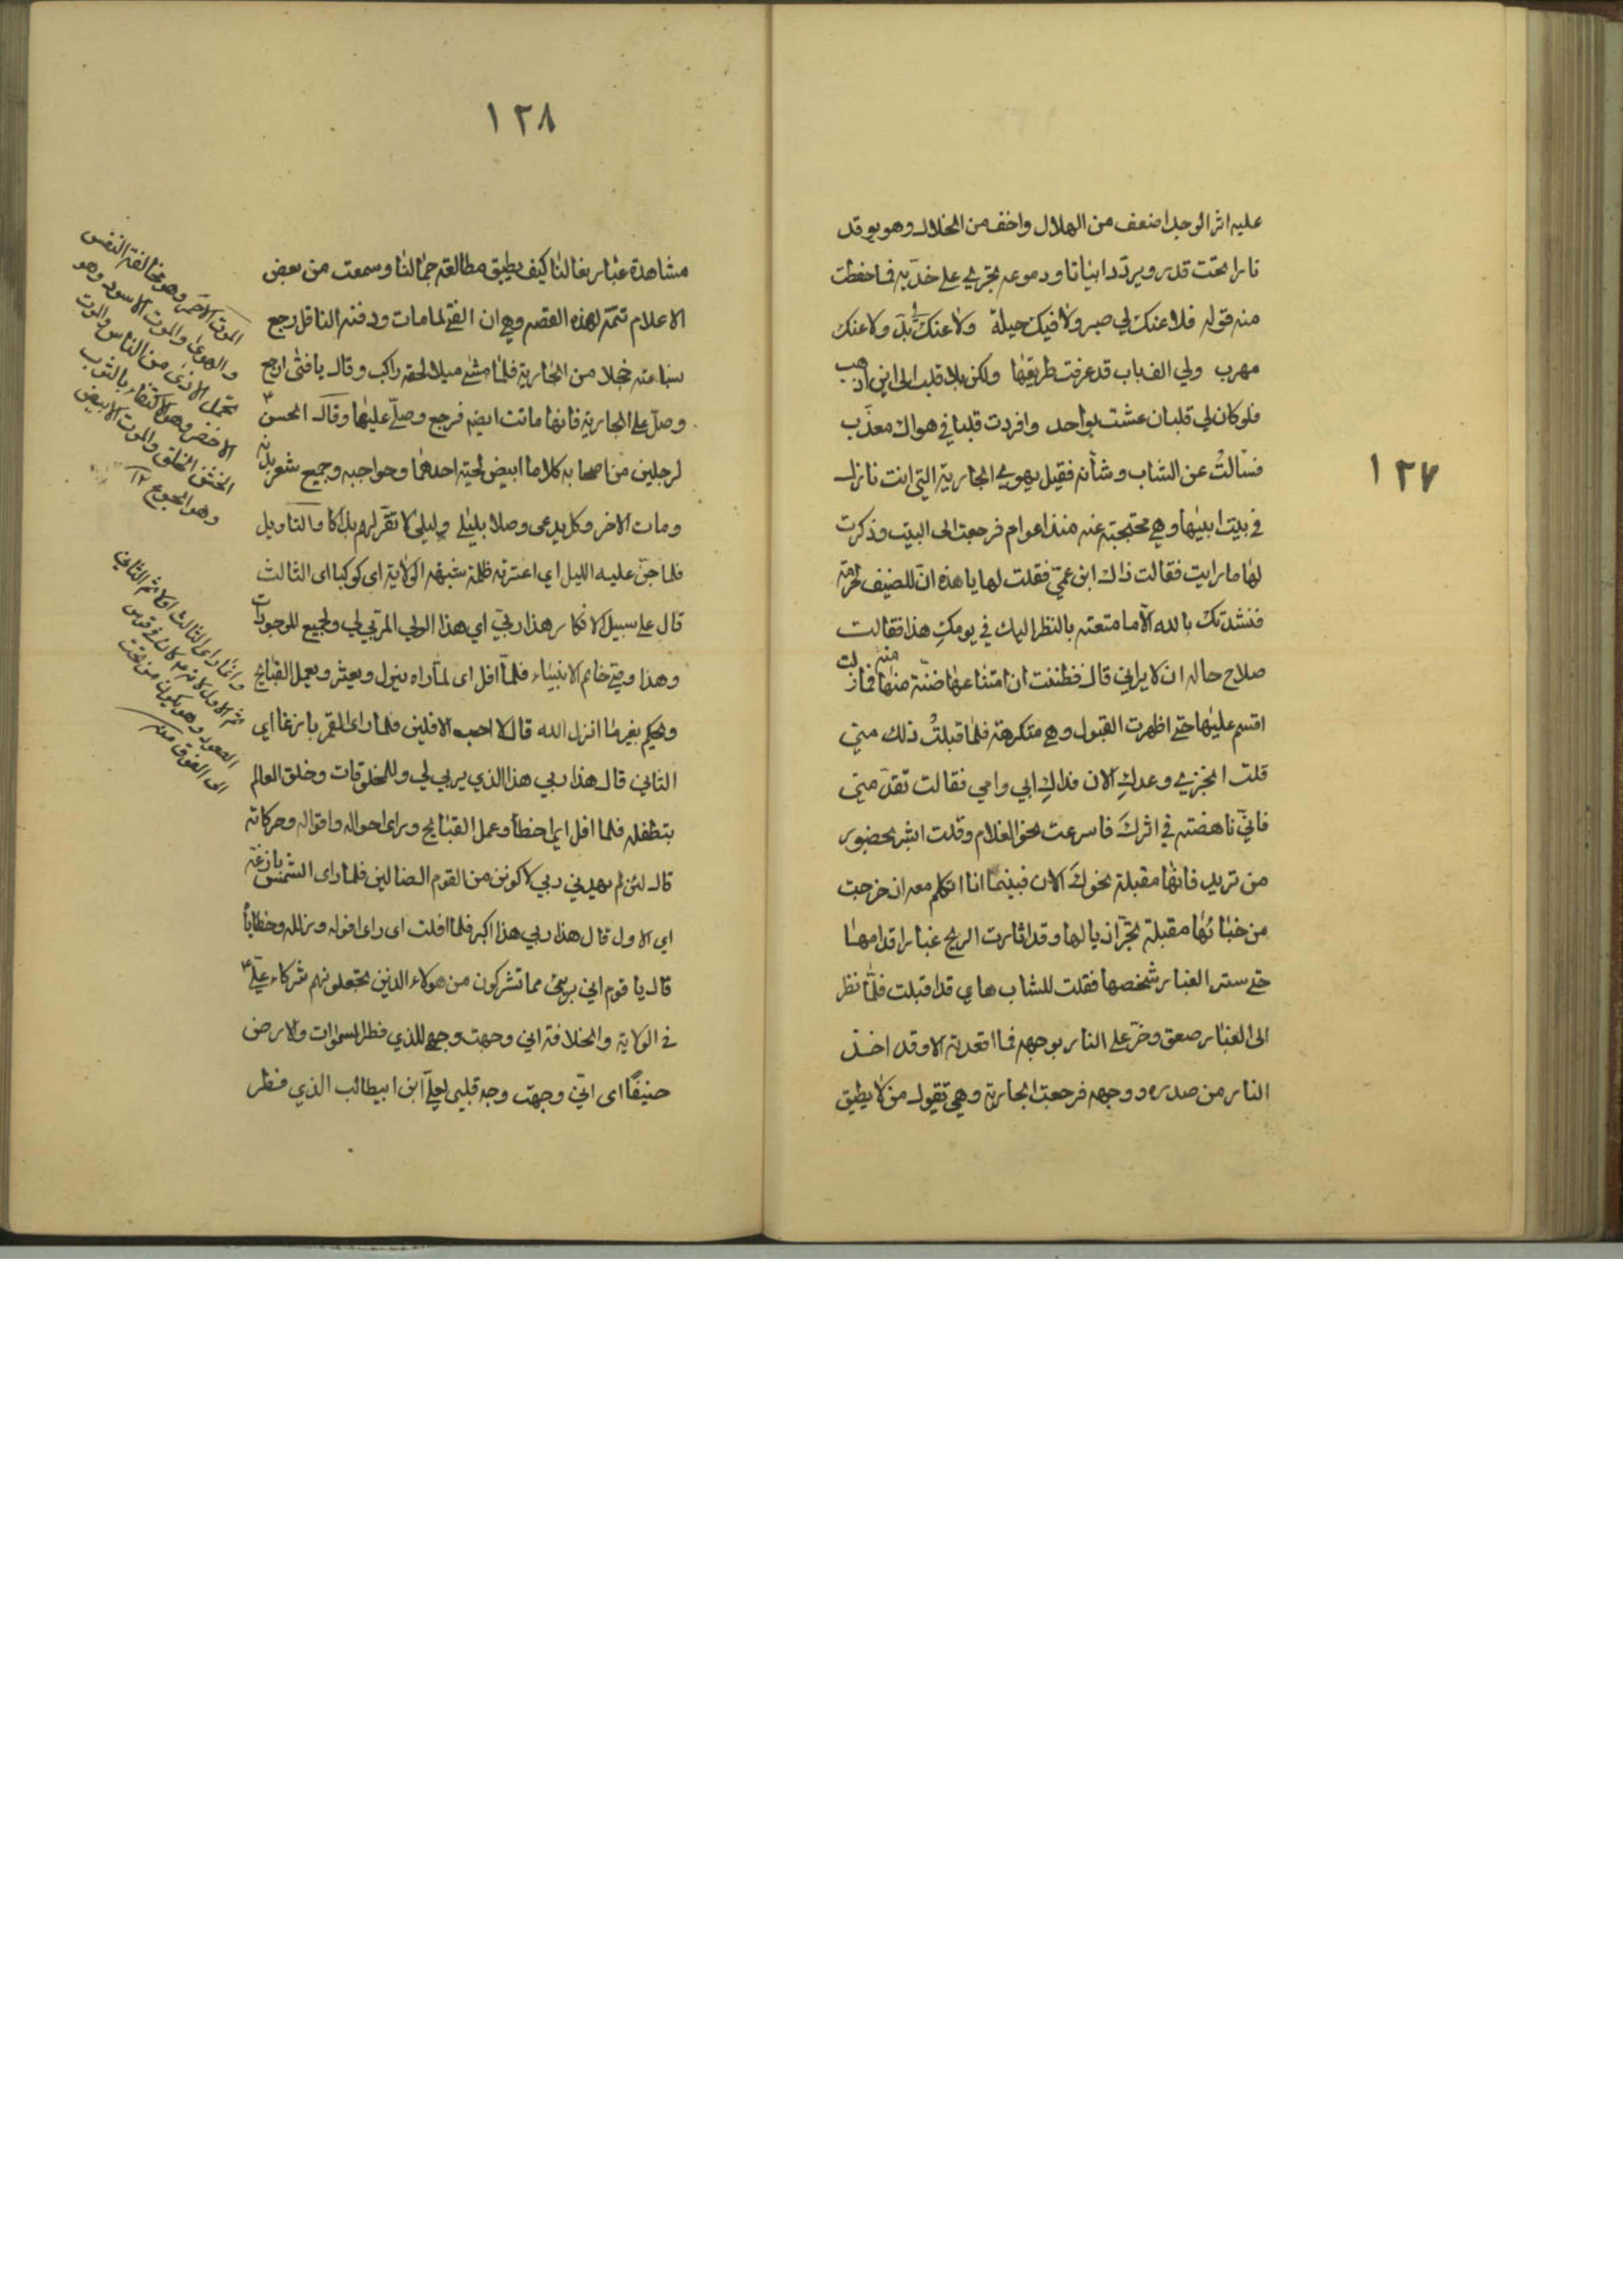 ١٢٧
عليه اثر الوجد اضعف من الهلال واخف من الخلال وهو يوقد
نارا تحت قدر ويردد ابياتا ودموعه تجري على خديه فما حفظت
منه قوله فلا عنك لي صبر ولا فيك حيلة ولا عنك لي بد ولا عنك
مهرب ولي الف باب قد عرفت طريقها ولكن بلا قلب الى اين اذهب
فلو كان لي قلبان عشت بواحد وافردت قلبا في هواك معذب
فسالت عن الشاب وشأنه فقيل يهوى الجارية التي انت نازل
في بيت ابيها وهي محتجبة عنه منذ اعوام فرجعت الى البيت وذكرت
لها ما رايت فقالت ذاك ابن عمي فقلت لها يا هذه ان للضيف حرمة
فنشدتك بالله الا ما متعته بالنظر اليك في يومك هذا فقالت
صلاح حاله ان لا يراني قال فظننت ان امتناعها ضنة منها فما زلت
اقسم عليها حتى اظهرت القبول وهي متكرهة فلما قبلت ذلك مني
قلت انجزي وعدك الان فداك ابي وامي فقالت تقد مني
فاني ناهضة في اثرك فاسرعت نحو الغلام وقلت ابشر بحضور
من تريد فانها مقبلة نحوك الان فبينما انا اتكلم معه اذ خرجت
من خبائها مقبلة تجر اذيالها وقد اثارت الريح غبار اقدامها
حتى ستر الغبار شخصها فقلت للشاب ها هي قد اقبلت فلما نظر
الى الغبار صعق وخر على النار بوجهه فما اقعدته الا وقد اخذ
النار من صدره ووجهه فرجعت الجارية وهي تقول من لا يطيق
١٢٨
مشاهدة غبار نعالنا كيف يطيق مطالعة جمالنا وسمعت من بعض
الاعلام تتمة لهذه القصه وهي ان الفتى لما مات ودفنه الناقل رجع
ساعته خجلا من الجارية فلما مشى ميلا لحقه راكب وقال يا فتى ارجع
وصل على الجارية فانها ماتت ايضا فرجع وصلى عليها وقال الحسن
لرجلين من اصحابه كلاما ابيض لحية احدهما وحواجبه وجميع شعر بدنه
ومات الاخر وكل يدعي وصلا بليلى وليلى لا تقر لهم بذاكا والتاويل
فلما جن عليه الليل اي اعترته ظلمة شبهه الولاية اي كوكبا اي الثالث
قال على سبيل الانكار هذا ربي اي هذا الولي المربي لي ولجميع الموجودات
وهذا وصي خاتم الانبياء فلما افل اي لما راه يزول ويعثر ويعمل القبايح
ويحكم بغير ما انزل الله قال لا احب الافلين فلما راى القمر بازغا اي
الثاني قال هذا ربي هذا الذي يربي لي وللمخلوقات وخلق العالم
بتطفله فلما افل اي اخطأ وعمل القبايح وراى احواله واقواله وحركاته
قال لئن لم يهدني ربي لاكونن من القوم الضالين فلما راى الشمس بازغة
اي الاول قال هذا ربي هذا اكبر فلما افلت اي راى افوله وزلله وخطاياه
قال يا قوم اني بريء مما تشركون من هولاء الذين تجعلونهم شركاء علي
في الولاية والخلافة اني وجهت وجهي للذي فطر السموات والارض
حنيفا اي اني وجهت وجه قلبي لعلي ابن ابيطالب الذي فطر
الموت الاحمر وهو مخالفة النفس
والهوى والموت الاسود وهو
تحمل الاذى من الناس والموت
الاخضر وهو الاكتفاء بالثوب
الخشن الخلق والموت الابيض
وهو الجوع ١٢
وانما راى الثالث اولا ثم الثاني
ثم الاول لانه كان في قوس
الصعود وهو يكون من تحت
الى الفوق منه